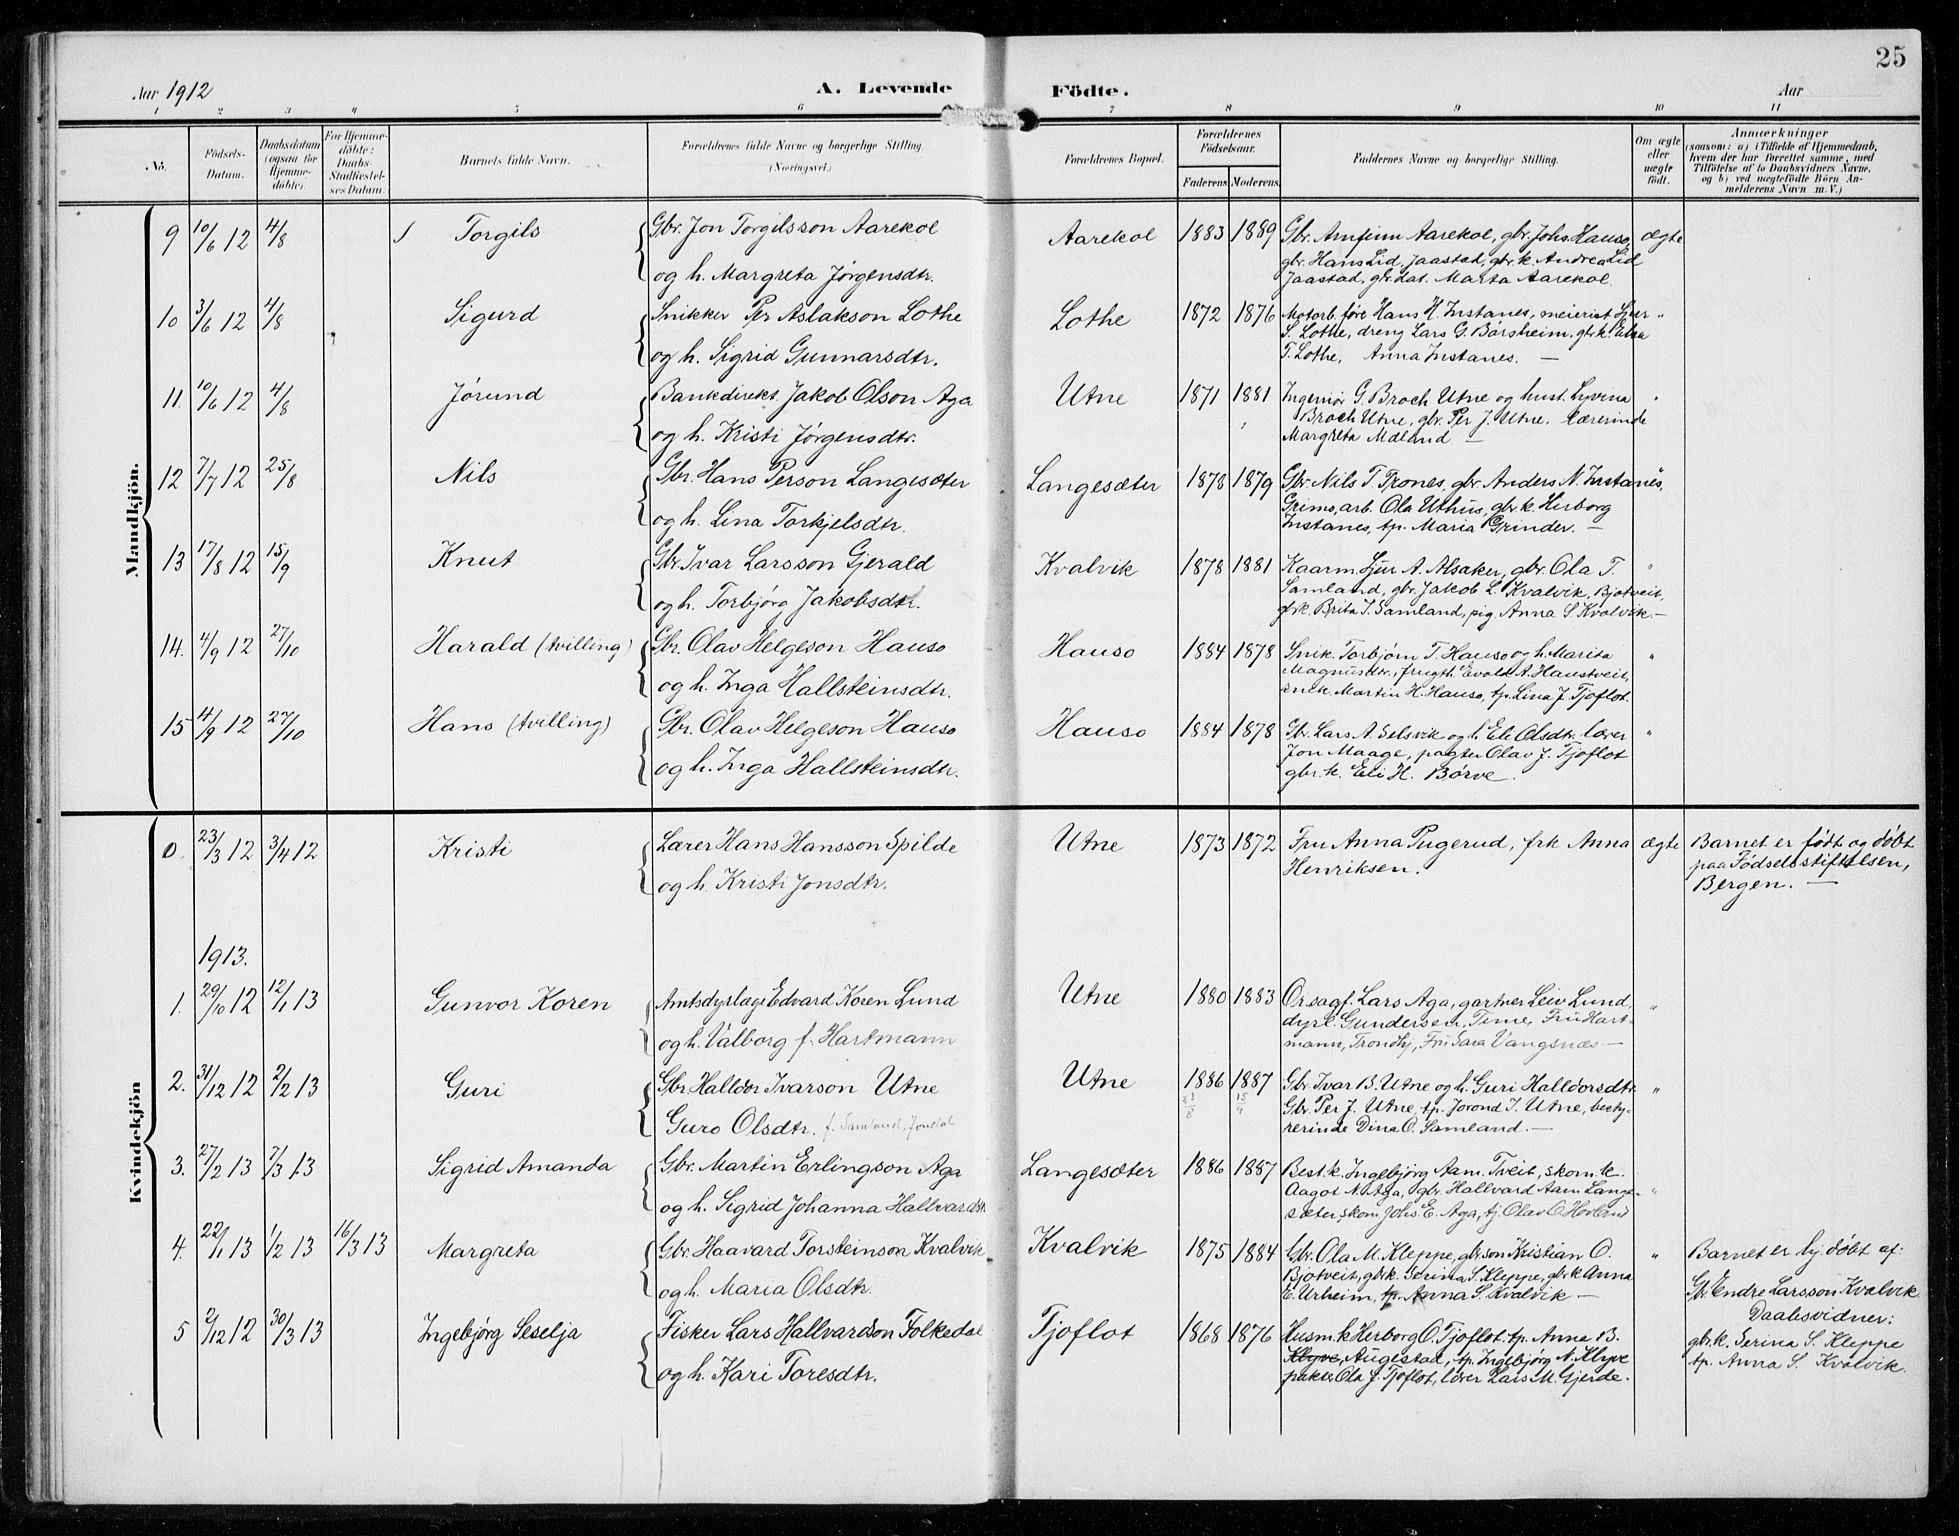 25
Aar 1912
A. Levende
Födte.
Aar
1 2 3 4 5 6 7 8 9 10 11
No.
Födsels-Datum.
Daabsdatum (ogsaa for Hjemmedöbte).
For Hjemmedöbte: Daabs-Stadfæstelses Datum.
Barnets fulde Navn.
Forældrenes fulde Navne og borgerlige Stilling. (Næringsvei.)
Forældrenes Bopæl.
Forældrenes Födselsaar.
Faderens Moderens
Faddernes Navne og borgerlige Stilling.
Om ægte eller uægte födt.
Anmærkninger
(saasom: a) i Tilfælde af Hjemmedaab, hvem der har forrettet samme, med Tilföielse af to Daabsvidners Navne, og b) ved uægtefödte Börn Anmelderens Navn m. V.)
Mandkjön.
9 10/6 12 4/8 Torgils Gbr. Jon Torgilsson Aarekol Aarekol 1883 1889 Gbr. Arnfinn Aarekol, gbr. Johs. Hauso, ægte
og h. Margreta Jørgensdtr. gbr. Hans Lid, Jaastad, gbr.k. Andrea Lid
Jaastad, gbr.dat. Marta Aarekol.
10 3/6 12 4/8 Sigurd Snikker Per Aslakson Lothe Lothe 1872 1876 Motorb.føre Hans H. Instanes, meierist Sjur "
og h. Sigrid Gunnarsdtr. S. Lothe, dreng Lars G. Børsheim, gbr.k. Elsa
T. Lothe, Anna Instanes. —
11. 10/6 12 4/8 Jørund Bankdirekt. Jakob Olson Aga Utne 1871 1881 Ingeniør G. Broch Utne og hust. Lyvina "
og h. Kristi Jørgensdtr. Broch Utne, gbr. Per J. Utne, lærerinde
Margreta Mæland —
12 7/7 12 25/8 Nils Gbr. Hans Person Langesæter Langesæter 1878 1879 Gbr. Nils T. Trones, gbr. Anders N. Instanes, "
og h. Lina Torkjelsdtr. Grimo, arb. Ola Uthus, gbr.k. Herborg
Instanes, tp. Maria Grinder. —
13 17/8 12 15/9 Knut Gbr. Ivar Larsson Gjerald Kvalvik 1878 1881 Kaarm. Sjur A. Alsaker, gbr. Ola T. "
og h. Torbjørg Jakobsdtr. Samland, gbr. Jakob L. Kvalvik, Bjotveit,
gbr.k. Brita T. Samland, pig. Anna S. Kvalvik. —
14. 4/9 12 27/10 Harald (tvilling) Gbr. Olav Helgeson Hauso Hauso 1884 1878 Snik. Torbjørn T. Hauso og h. Marita "
og h. Inga Hallsteinsdtr. Magnusdtr., frugth. Evald A. Haustveit,
snik. Martin H. Hauso, tp. Lina J. Tjoflot.
15 4/9 12 27/10 Hans (tvilling) Gbr. Olav Helgeson Hauso Hauso 1884 1878 Gbr. Lars A. Selsvik og h. Eli Olsdtr. lærer "
og h. Inga Hallsteinsdtr. Jon Maage, pagter Olav J. Tjoflot
gbr.k. Eli H. Børve.
Kvindekjön
0. 23/3 12 3/4 12 Kristi Lærer Hans Hansson Spilde Utne 1873 1872 Fru Anna Pugerud, frk Anna ægte Barnet er født og døbt
og h. Kristi Jonsdtr. Henriksen. paa Fødselsstiftelsen,
Bergen. —
1913.
1. 29/10 12 12/1 13 Gunvor Koren Amtsdyrlæge Edvard Koren Lund Utne 1880 1883 O.r.sagf. Lars Aga, gartner Leiv Lund, "
og h. Valborg f. Hartmann dyrl. Gundersen, Time, Fru Hart-
mann, Trondhj, Fru Sara Vangsnæs —
2. 31/12 12 2/2 13 Guri Gbr. Halldor Ivarson Utne Utne 1886 1887 Gbr. Ivar B. Utne og h. Guri Halldorsdtr. "
Guro Olsdtr. f. Samland, Jondal Gbr. Per J. Utne, tp. Jorond I. Utne, besty-
rerinde Dina O. Samland. —
3. 27/2 13 7/3 13 Sigrid Amanda Gbr. Martin Erlingson Aga Langesæter 1886 1887 Best.k. Ingebjørg Aam. Tveit, skom.k.
og h. Sigrid Johanna Hallvardsdtr. Aagot N. Aga, gbr. Hallvard Aam. Lange- "
sæter, skom. Johs. E. Aga, tj. Olav O. Hovland
4. 22/1 13 1/2 13 16/3 13 Margreta Gbr. Haavard Torsteinson Kvalvik Kvalvik 1875 1884 Gbr. Ola M. Kleppe, gbr.son Kristian O. " Barnet er hj.døbt af:
og h. Maria Olsdtr. Bjotveit, gbr.k. Serina S. Kleppe, gbr.k Anna Gbr. Endre Larsson Kvalvik
E. Urheim, tp. Anna S. Kvalvik — Daabsvidner:
5 2/12 12 30/3 13 Ingebjørg Seselja Fisker Lars Hallvardson Folkedal Tjoflot 1868 1876 Husm.k Herborg O. Tjoflot, tp. Anna B. gbr.k. Serina S. Kleppe
og h. Kari Toresdtr. Klyve, Augestad, tp. Ingebjørg N. Klyve tp. Anna S. Kvalvik.
Ola J. Tjoflot, lærer Lars M. Gjerde.